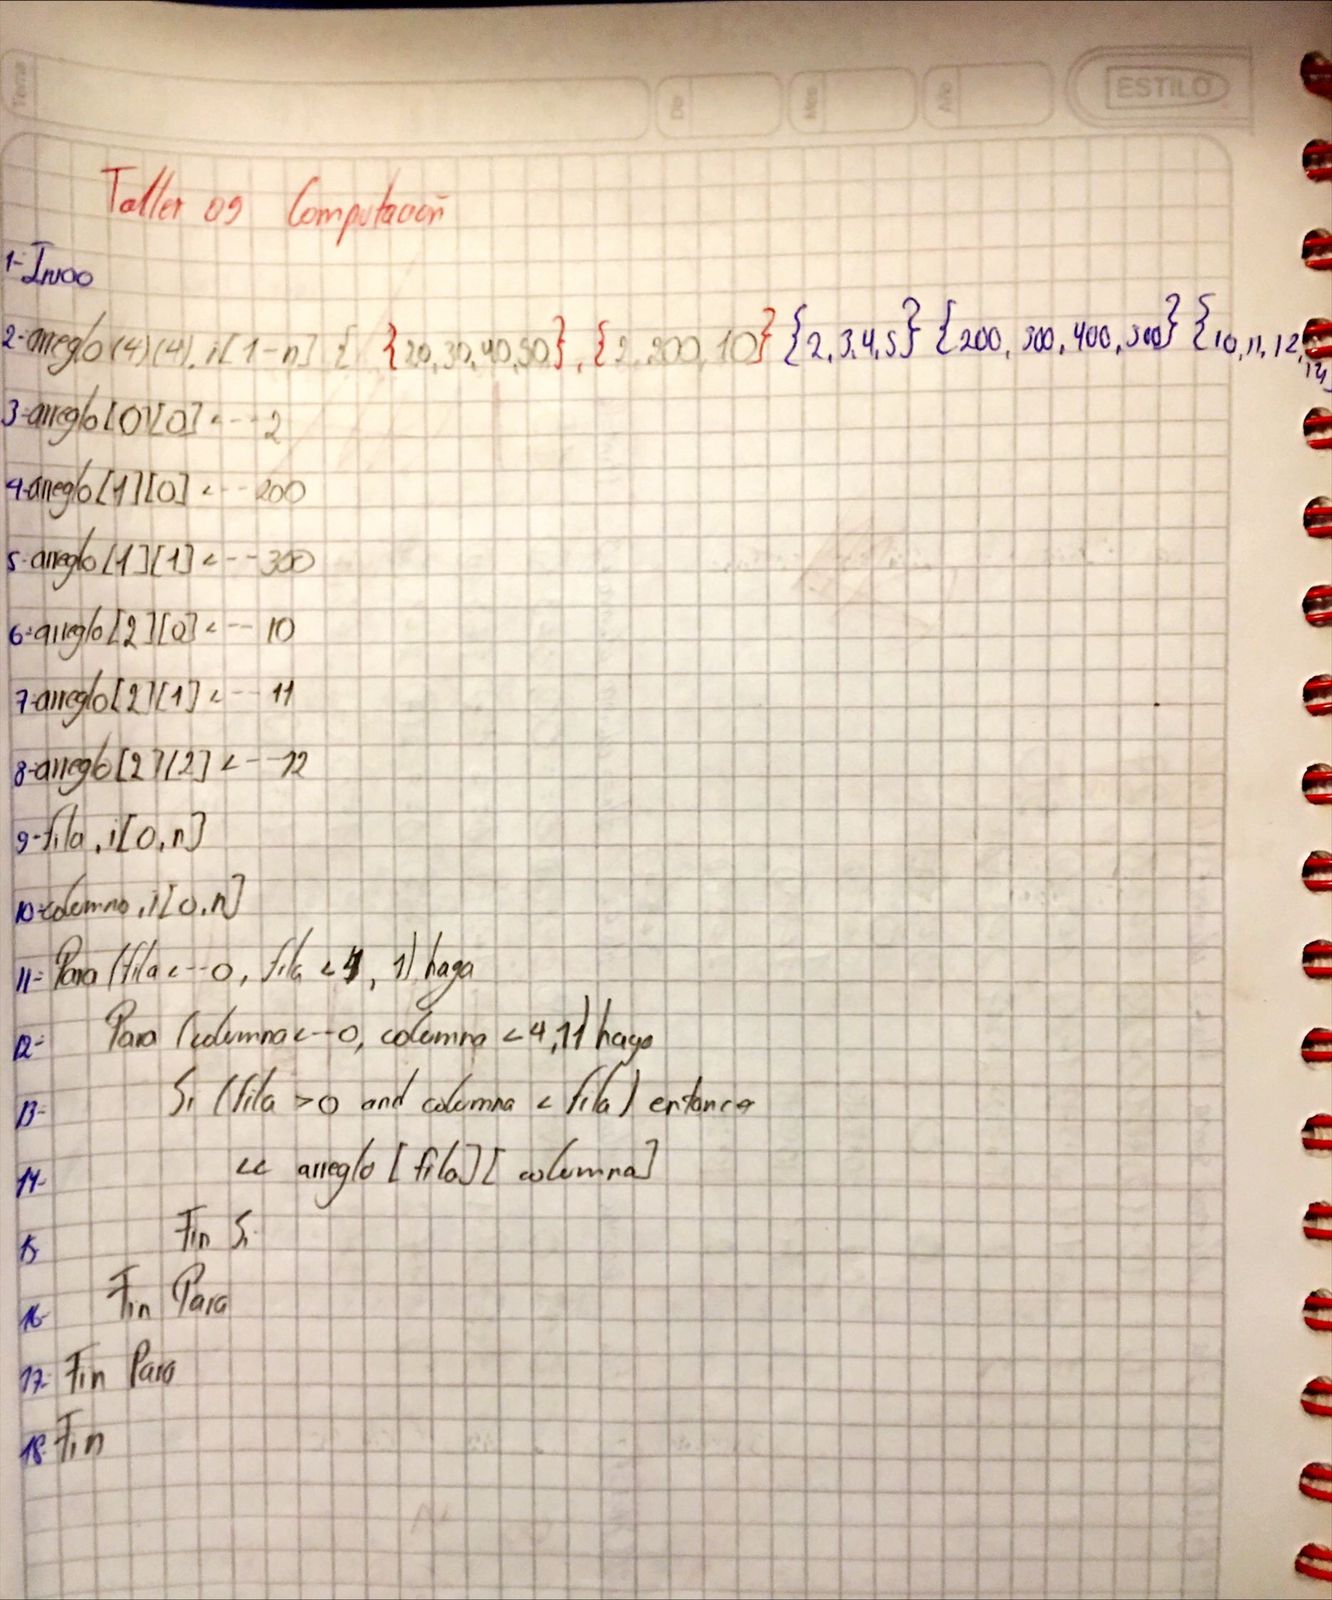 Tema
Día
Mes
Año
ESTILO
Taller 09 Computación
1- Inicio
2- arreglo(4)(4), i[1-n] { {20,30,40,50}, {2,200,10} {2,3,4,5} {200, 300, 400, 500} {10,11,12,
3- arreglo[0][0] <-- 2
4- arreglo[1][0] <-- 200
5- arreglo[1][1] <-- 300
6- arreglo[2][0] <-- 10
7- arreglo[2][1] <-- 11
8- arreglo[2][2] <-- 12
9- fila, i[0,n]
10- columna, i[0,n]
11- Para (fila <-- 0, fila < 4, 1) haga
12- Para (columna <-- 0, columna < 4, 1) haga
13- Si (fila > 0 and columna < fila) entonces
14- << arreglo [fila][ columna]
15 Fin Si
16- Fin Para
17- Fin Para
18- Fin